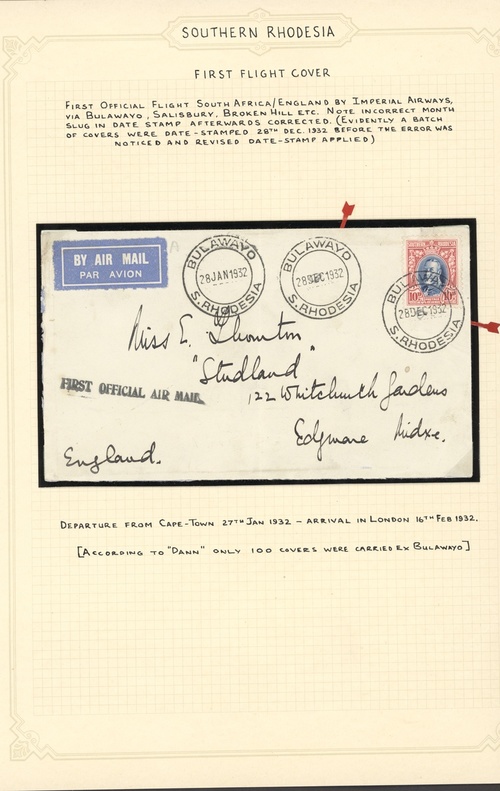 SOUTHERN RHODESIA
FIRST FLIGHT COVER
FIRST OFFICIAL FLIGHT SOUTH AFRICA/ENGLAND BY IMPERIAL AIRWAYS,
VIA BULAWAYO, SALISBURY, BROKEN HILL ETC. NOTE INCORRECT MONTH
SLUG IN DATE STAMP AFTERWARDS CORRECTED. (EVIDENTLY A BATCH
OF COVERS WERE DATE-STAMPED 28TH DEC. 1932 BEFORE THE ERROR WAS
NOTICED AND REVISED DATE-STAMP APPLIED)
BY AIR MAIL
PAR AVION
BULAWAYO
28 JAN 1932
S. RHODESIA
BULAWAYO
28 DEC 1932
S. RHODESIA
SOUTHERN RHODESIA
BULAWAYO
28 DEC 1932
S. RHODESIA
Miss E. Thornton
"Studland"
122 Whitchurch Gardens
Edgware Midx.
England.
FIRST OFFICIAL AIR MAIL
DEPARTURE FROM CAPE-TOWN 27TH JAN 1932 – ARRIVAL IN LONDON 16TH FEB 1932.
[ACCORDING TO "DANN" ONLY 100 COVERS WERE CARRIED EX BULAWAYO]